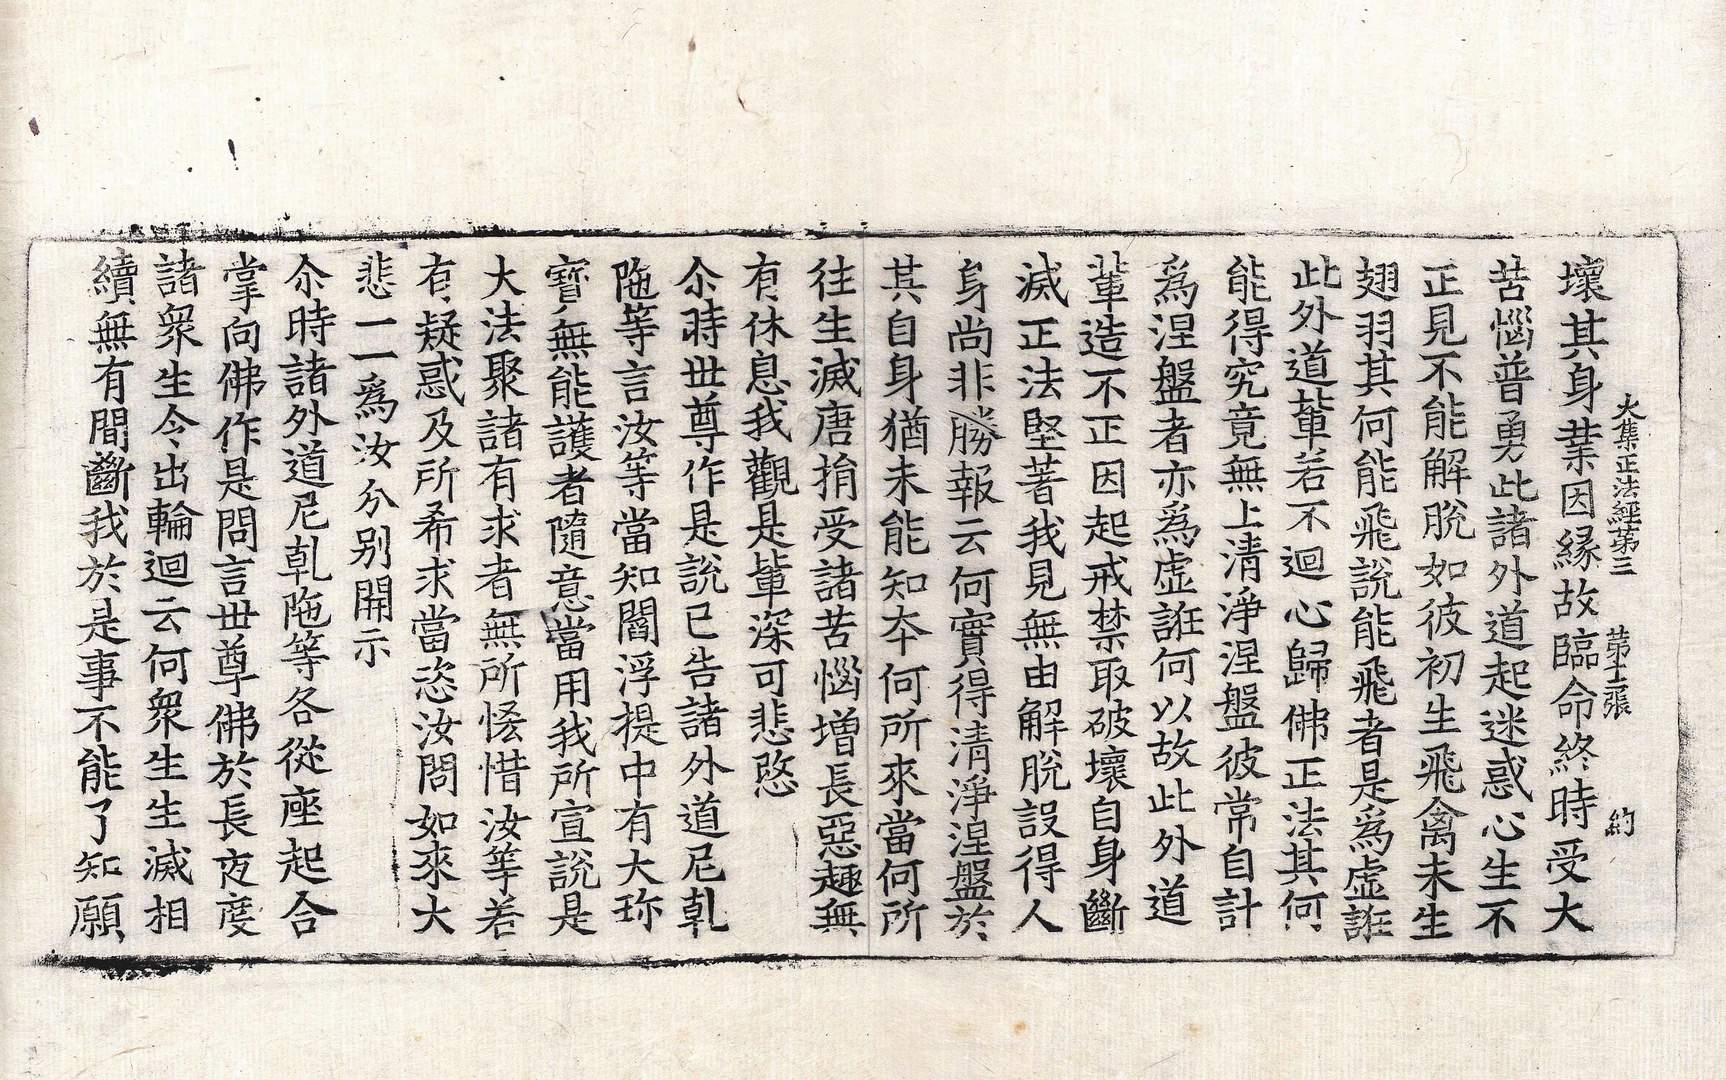 大集正法經第三　第十二張　約
壞其身業因縁故臨命終時受大
苦惱普勇此諸外道起迷惑心生不
正見不能解脫如彼初生飛禽未生
翅羽其何能飛說能飛者是爲虛誑
此外道軰若不迴心歸佛正法其何
能得究竟無上清淨涅盤彼常自計
爲涅盤者亦爲虛誑何以故此外道
軰造不正因起戒禁取破壞自身斷
滅正法堅著我見無由解脫設得人
身尚非勝報云何實得清淨涅盤於
其自身猶未能知夲何所來當何所
往生滅唐捐受諸苦惱增長惡趣無
有休息我觀是軰深可悲愍
尒時丗尊作是說已告諸外道尼乹
陁等言汝等當知閻浮提中有大珎
寶無能護者隨意當用我所宣說是
大法聚諸有求者無所悋惜汝等若
有疑惑及所希求當恣汝問如來大
悲一一爲汝分别開示
尒時諸外道尼乹陁等各從座起合
掌向佛作是問言丗尊佛於長夜度
諸衆生令出輪迴云何衆生生滅相
續無有間斷我於是事不能了知願